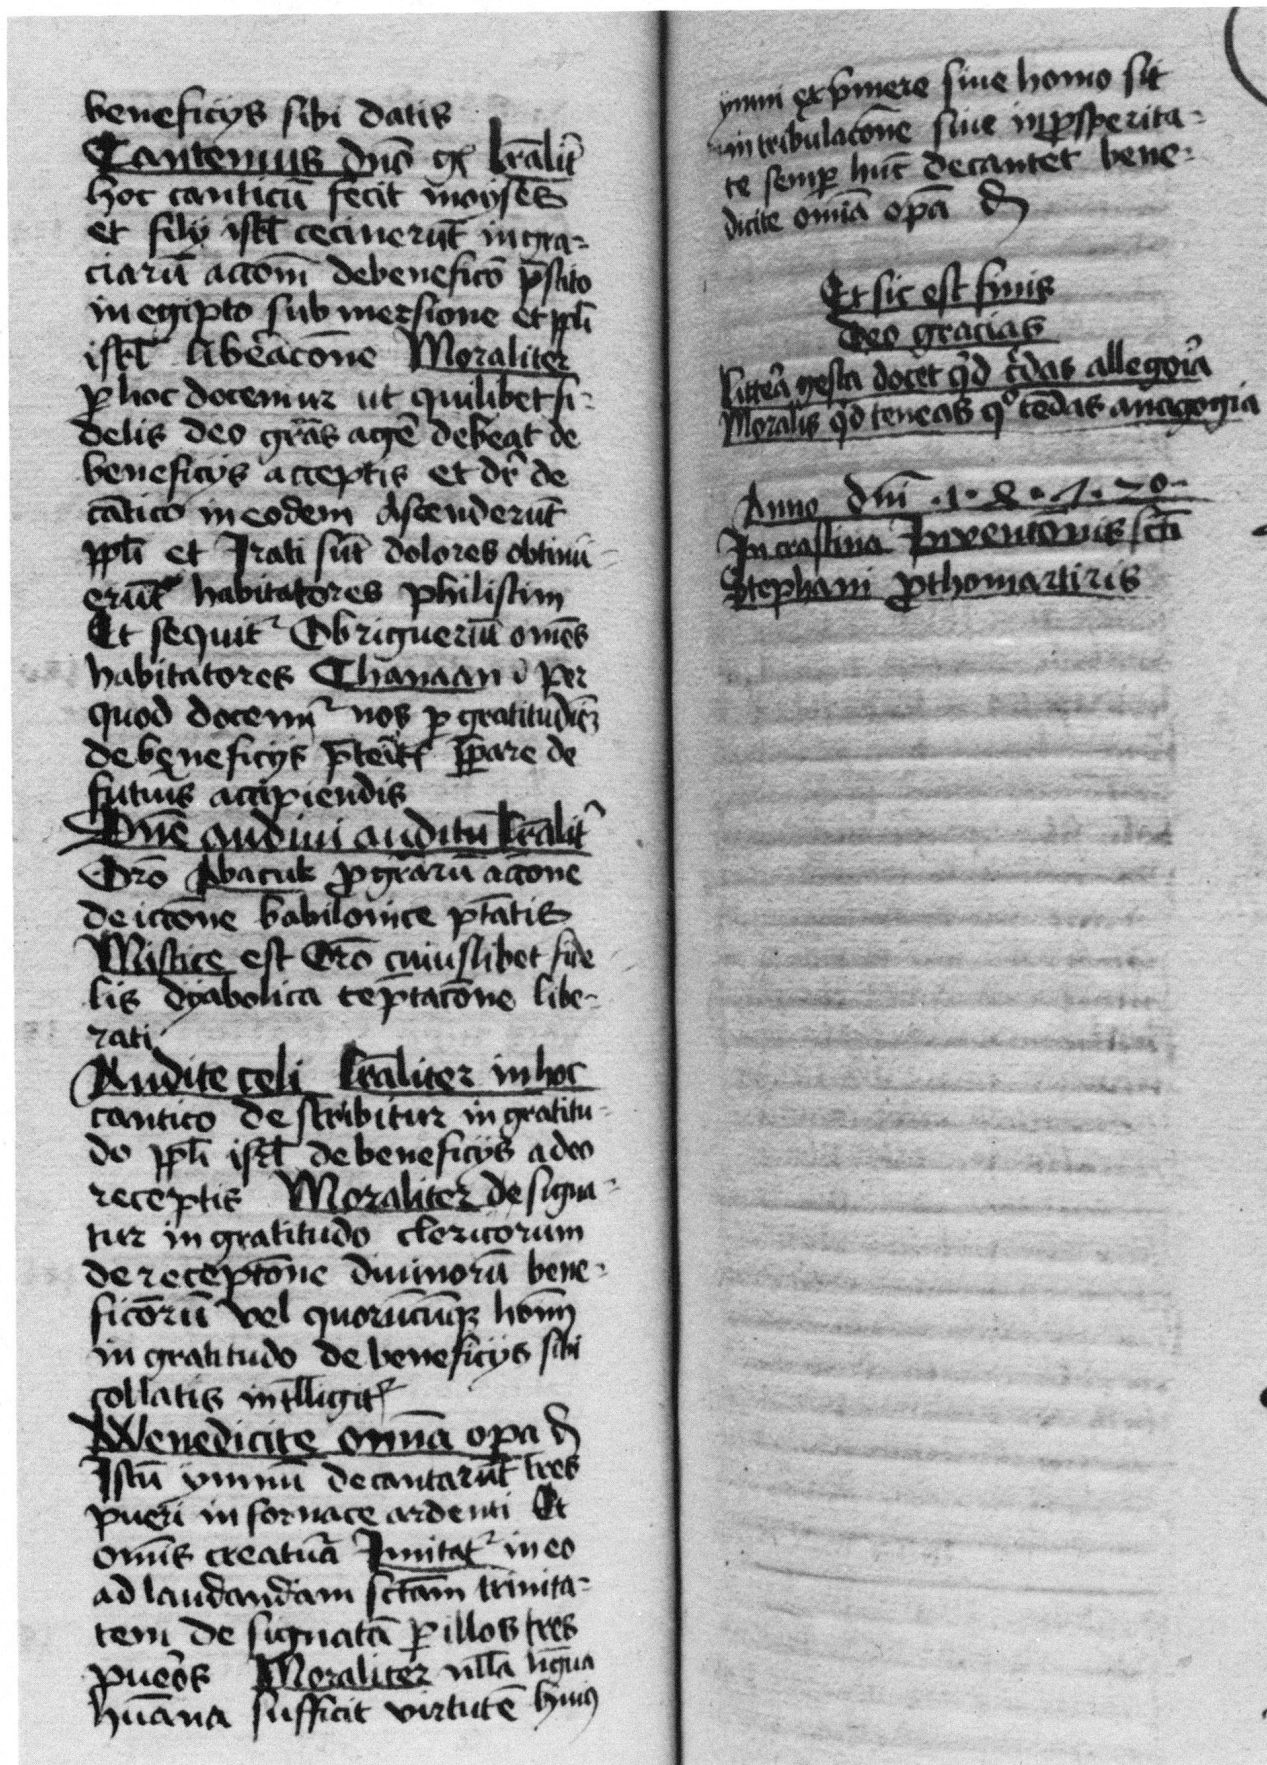 beneficijs sibi datis
Cantemus dn̄o gͥ l̄ralit᷑
hoc canticū fecit moyses
et filij isrl̄ cecinerūt in gra-
ciarū acc̄oem de benefic̄o p̄stito
in egipto submersione et ppl̄i
isrl̄ liberac̄one Moraliter
ꝑ hoc docemur ut quilibet fi-
delis deo gr̄as agē debeat de
beneficijs acceptis et dr̄ de
cātico in eodem Ascenderūt
ppl̄i et Irati sūt dolores obtinu-
erūt habitatores philistim
Et sequit᷑ Obriguerūt om̄es
habitatores Chanaan per
quod docem᷑ nos ꝑ gratitudīeꝫ
de beneficijs p̄parare de
futuris accipiendis
Dn̄e audiui auditū l̄ralit᷑
Or̄o Abacuk ꝓ gr̄arū acc̄one
deiecc̄one babilonice pt̄atis
Mistice est Or̄o cuiuslibet fide
lis dyabolica tēptac̄one libe-
rati
Audite celi l̄raliter in hoc
cantico describitur ingratitu-
do ppl̄i isrl̄ de beneficijs a deo
receptis Moraliter designa-
tur ingratitudo clericorum
de recept̄one diuinorū bene-
fic̄orū vel quorūcūqꝫ hoīm
ingratitudo de beneficijs sibi
collatis intelligit᷑
Benedicite om̄ia oꝑa d
Istū ymnū decantarūt tres
pueri in fornace ardenti Et
om̄is creatura Inuitat᷑ in eo
ad laudandam sc̄tam trinita-
tem designatā ꝑ illos tres
pueros Moraliter null̄a lingua
hūana sufficit virtutē huiꝰ
ymni exp̄mere siue homo sit
in tribulac̄one siue in ꝓsperita-
te semꝑ hūc decantet bene-
dicite om̄ia oꝑa d
Et sic est finis
deo gracias
littera gesta docet qd̄ c̄das allegoria
Moralis qd̄ teneas qͦ tēdas anagogia
Anno dn̄i .1.8.7.20.
In crastina Inuent̄onis sc̄ti
Stephani ꝓthomartiris